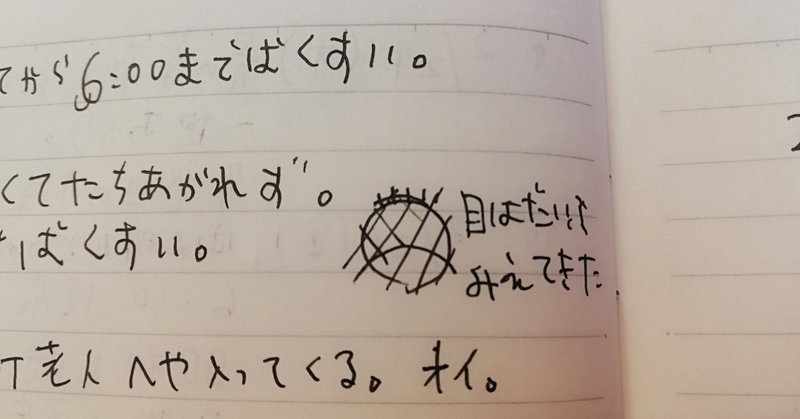 てから6:00までばくすい。
くてたちあがれず。
ばくすい。
目はだいぶ
みえてきた
T老人へや入ってくる。オイ。